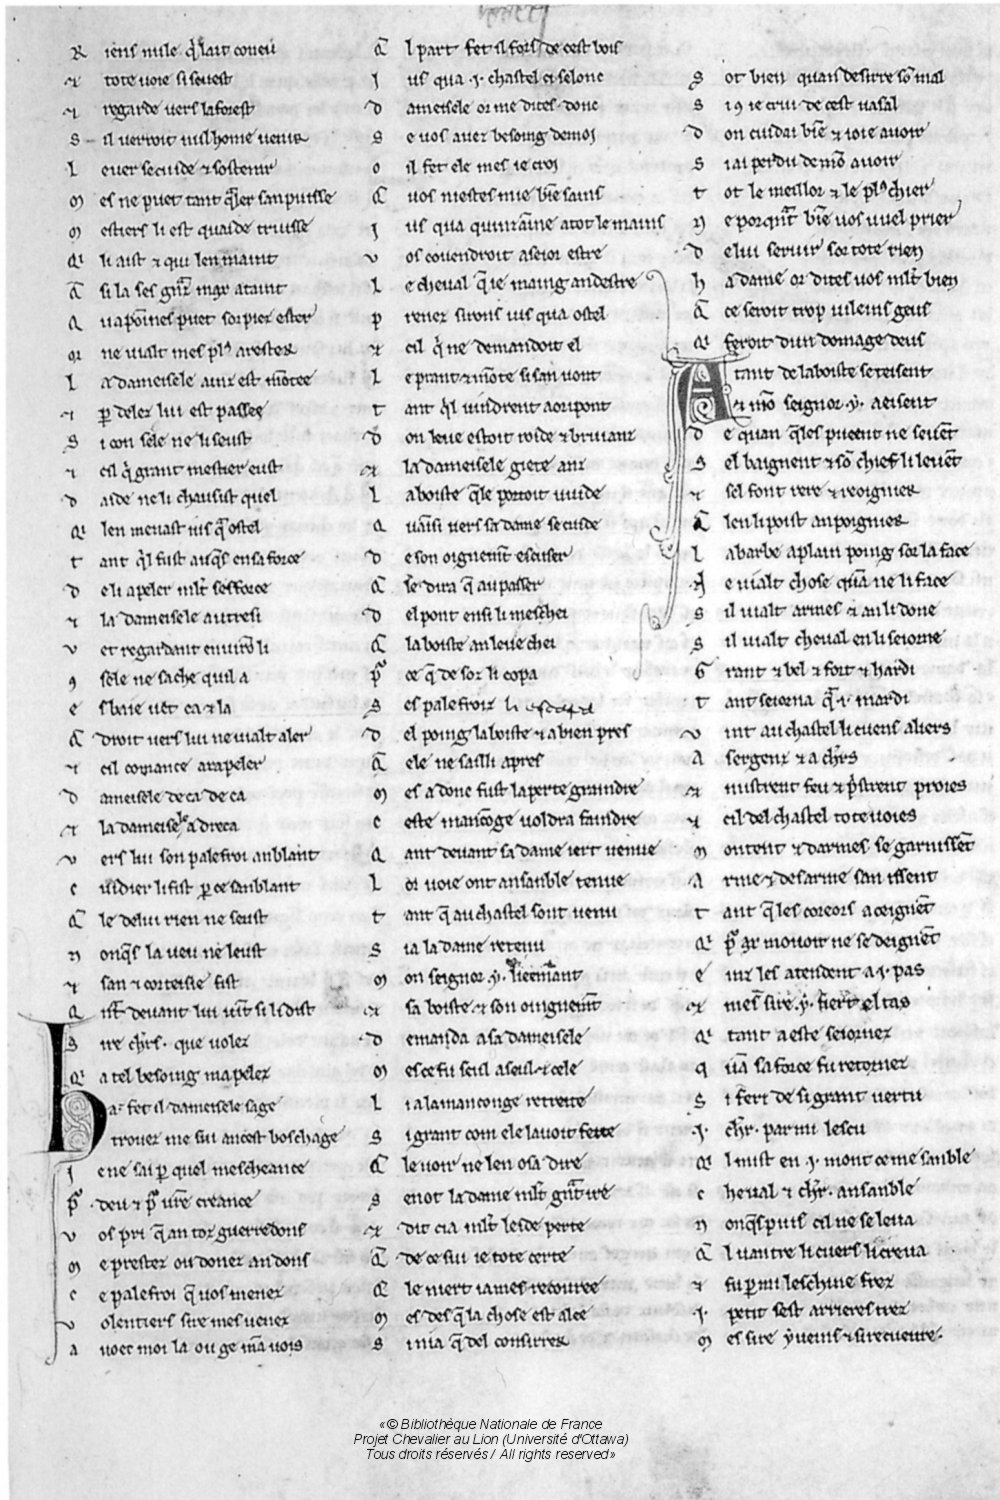 R iens nule q̃l ait coneü
⁊ tote voie si se vest
⁊ regarde vers la forest
S il verroit nul home venir
L ever se cuide ⁊ sostenir
M es ne puet tant q̃ler s'an puisse
M estiers li est qu'aïde truisse
Q̃ li aïst ⁊ qui l'en maint
C̃ si l'a ses gñz max ataint
Q u'a poines puet sor piez ester
Or ne vialt mes plꝰ arester
L a dameisele aniz est mõtee
⁊ p̱ delez lui est passee
S i con s'ele ne l'i seüst
⁊ cil q̇ grant mestier eüst
D 'aïde ne li chausist quel
Q̃ l'en menast jusq̃ ostel
T ant q̃l fust auq̃s en sa force
D e li apeler ml't s'esforce
⁊ la dameisele autresi
V et regardant environ̄ li
ꝯ s'ele ne sache qu'il a
E sbaïe vet ça ⁊ la
C̃ droit vers lui ne vialt aler
⁊ cil comance a rapeler
D ameisele de ça de ça
⁊ la dameisele adreça
V ers lui son palefroi anblant
C uidier li fist p̱ ce sanblant
C̃ le de lui rien ne seüst
N onq̃s la veü ne l'eüst
⁊ san ⁊ corteisie fist
Q ñt devant lui vint si li dist
S ire chr̃s que volez
Q̃ a tel besoing m'apelez
Ha fet il dameisele sage
trovez me sui an cest boschage
J e ne sai p̱ quel mescheance
P̱ deu ⁊ p̱ vr̃e creance
V os pri q̃ an toz guerredons
M e prestez ou donez an dons
C e palefroi q̃ vos menez
V olentiers sire mes venez
A voec moi la ou ge m'an vois
Q̃ l part fet il fors de cest bois
J usqu'a .i. chastel ci selonc
D ameisele or me dites donc
S e vos avez besoing de moi
O il fet ele mes je croi
C̃ vos n'iestes mie bien sains
J usqu'a quinzainne a tot le mains
V os covendroit a sejor estre
L e cheval q̃ je maing an destre
P renez s'irons jusqu'a ostel
⁊ cil q̇ ne demandoit el
L e prant ⁊ mõte si s'an vont
T ant q̃l vindrent a ou pont
D on l'eve estoit roide ⁊ bruianz
⁊ la dameisele giete anz
L a boiste q̃le portoit vuide
Q u'ansi vers sa dame se cuide
D e son oignemẽt escuser
C̃ le dira q̃ au passer
D el pont ensi li mescheï
C̃ la boiste an l'eve cheï
P̱ ce q̃ desor li copa
S es palefroiz li escapa
D el poing la boiste ⁊ a bien pres
C̃ ele ne sailli apres
M es adonc fust la perte graindre
C este mançoge voldra faindre
Q ant devant sa dame iert venue
L or voie ont ansanble tenue
T ant q̃ au chastel sont venu
S i a la dame retenu
M on seignor .y. lieemãnt
⁊ sa boiste ⁊ son oingnemẽt
D emanda a sa dameisele
M es ce fu seul a seul ⁊ cele
L i a la mançonge retreite
S i grant com ele l'avoit feite
C̃ le voir ne l'en osa dire
S en ot la dame ml't gr̃nt ire
⁊ dit ci a ml't leide perte
C̃ de ce sui je tote certe
Q̃ le n'iert jamés recovree
M es des q̃ la chose est alee
S i n'i a q̃ del consirrer
S ot bien quan desirre sõ mal
S iꝯ je crui de cest vasal
D on cuidai biẽ ⁊ joie avoir
S i ai perdu de mõ avoir
T ot le meillor ⁊ le plꝰ chier
N e porq̃nt biẽ vos vuel prier
D e lui servir sor tote rien
H a dame or dites vos ml't bien
C̃ ce seroit trop vileins geus
Q̃ feroit d'un domage deus
A tant de la boiste se teisent
⁊ mõ seignor .y. aeisent
D e quan q̃les pueent ne sevẽt
S el baignent ⁊ sõ chief li levẽt
⁊ sel font rere ⁊ reoignier
C̃ l'en li poïst an poignier
L a barbe a plain poing sor la face
N e vialt chose q̃n ne li face
S il vialt armes ⁊ an li done
S il vialt cheval en li sejorne
G rant ⁊ bel ⁊ fort ⁊ hardi
T ant sejorna q̃ .i. mardi
V int au chastel li cuens aliers
A sergenz ⁊ a chr̃s
⁊ mistrent feu ⁊ pristrent proies
⁊ cil del chastel totevoies
M ontent ⁊ d'armes se garnissẽt
A rmé ⁊ desarmé s'an issent
T ant q̃ les coreors aceignẽt
Q̃ p̱ ax movoir ne se deignẽt
E inz les atendent a .i. pas
⁊ mes sire .y. fiert el tas
Q̃ tant a esté sejornez
Q u'ãn sa force fu retornez
S i feri de si grant vertu
.I. chr̃. par mi l'escu
Q̃ l mist en .i. mont ce me sanble
C heval ⁊ chr̃. ansanble
N onq̃s puis cil ne se leva
C̃ l vantre li cuers li creva
⁊ fu p̱mi l'eschine frez
.I. petit s'est arrieres trez
M es sire yveins ⁊ si recuevre.
«© Bibliothèque Nationale de France
Projet Chevalier au Lion (Université d'Ottawa)
Tous droits réservés / All rights reserved»